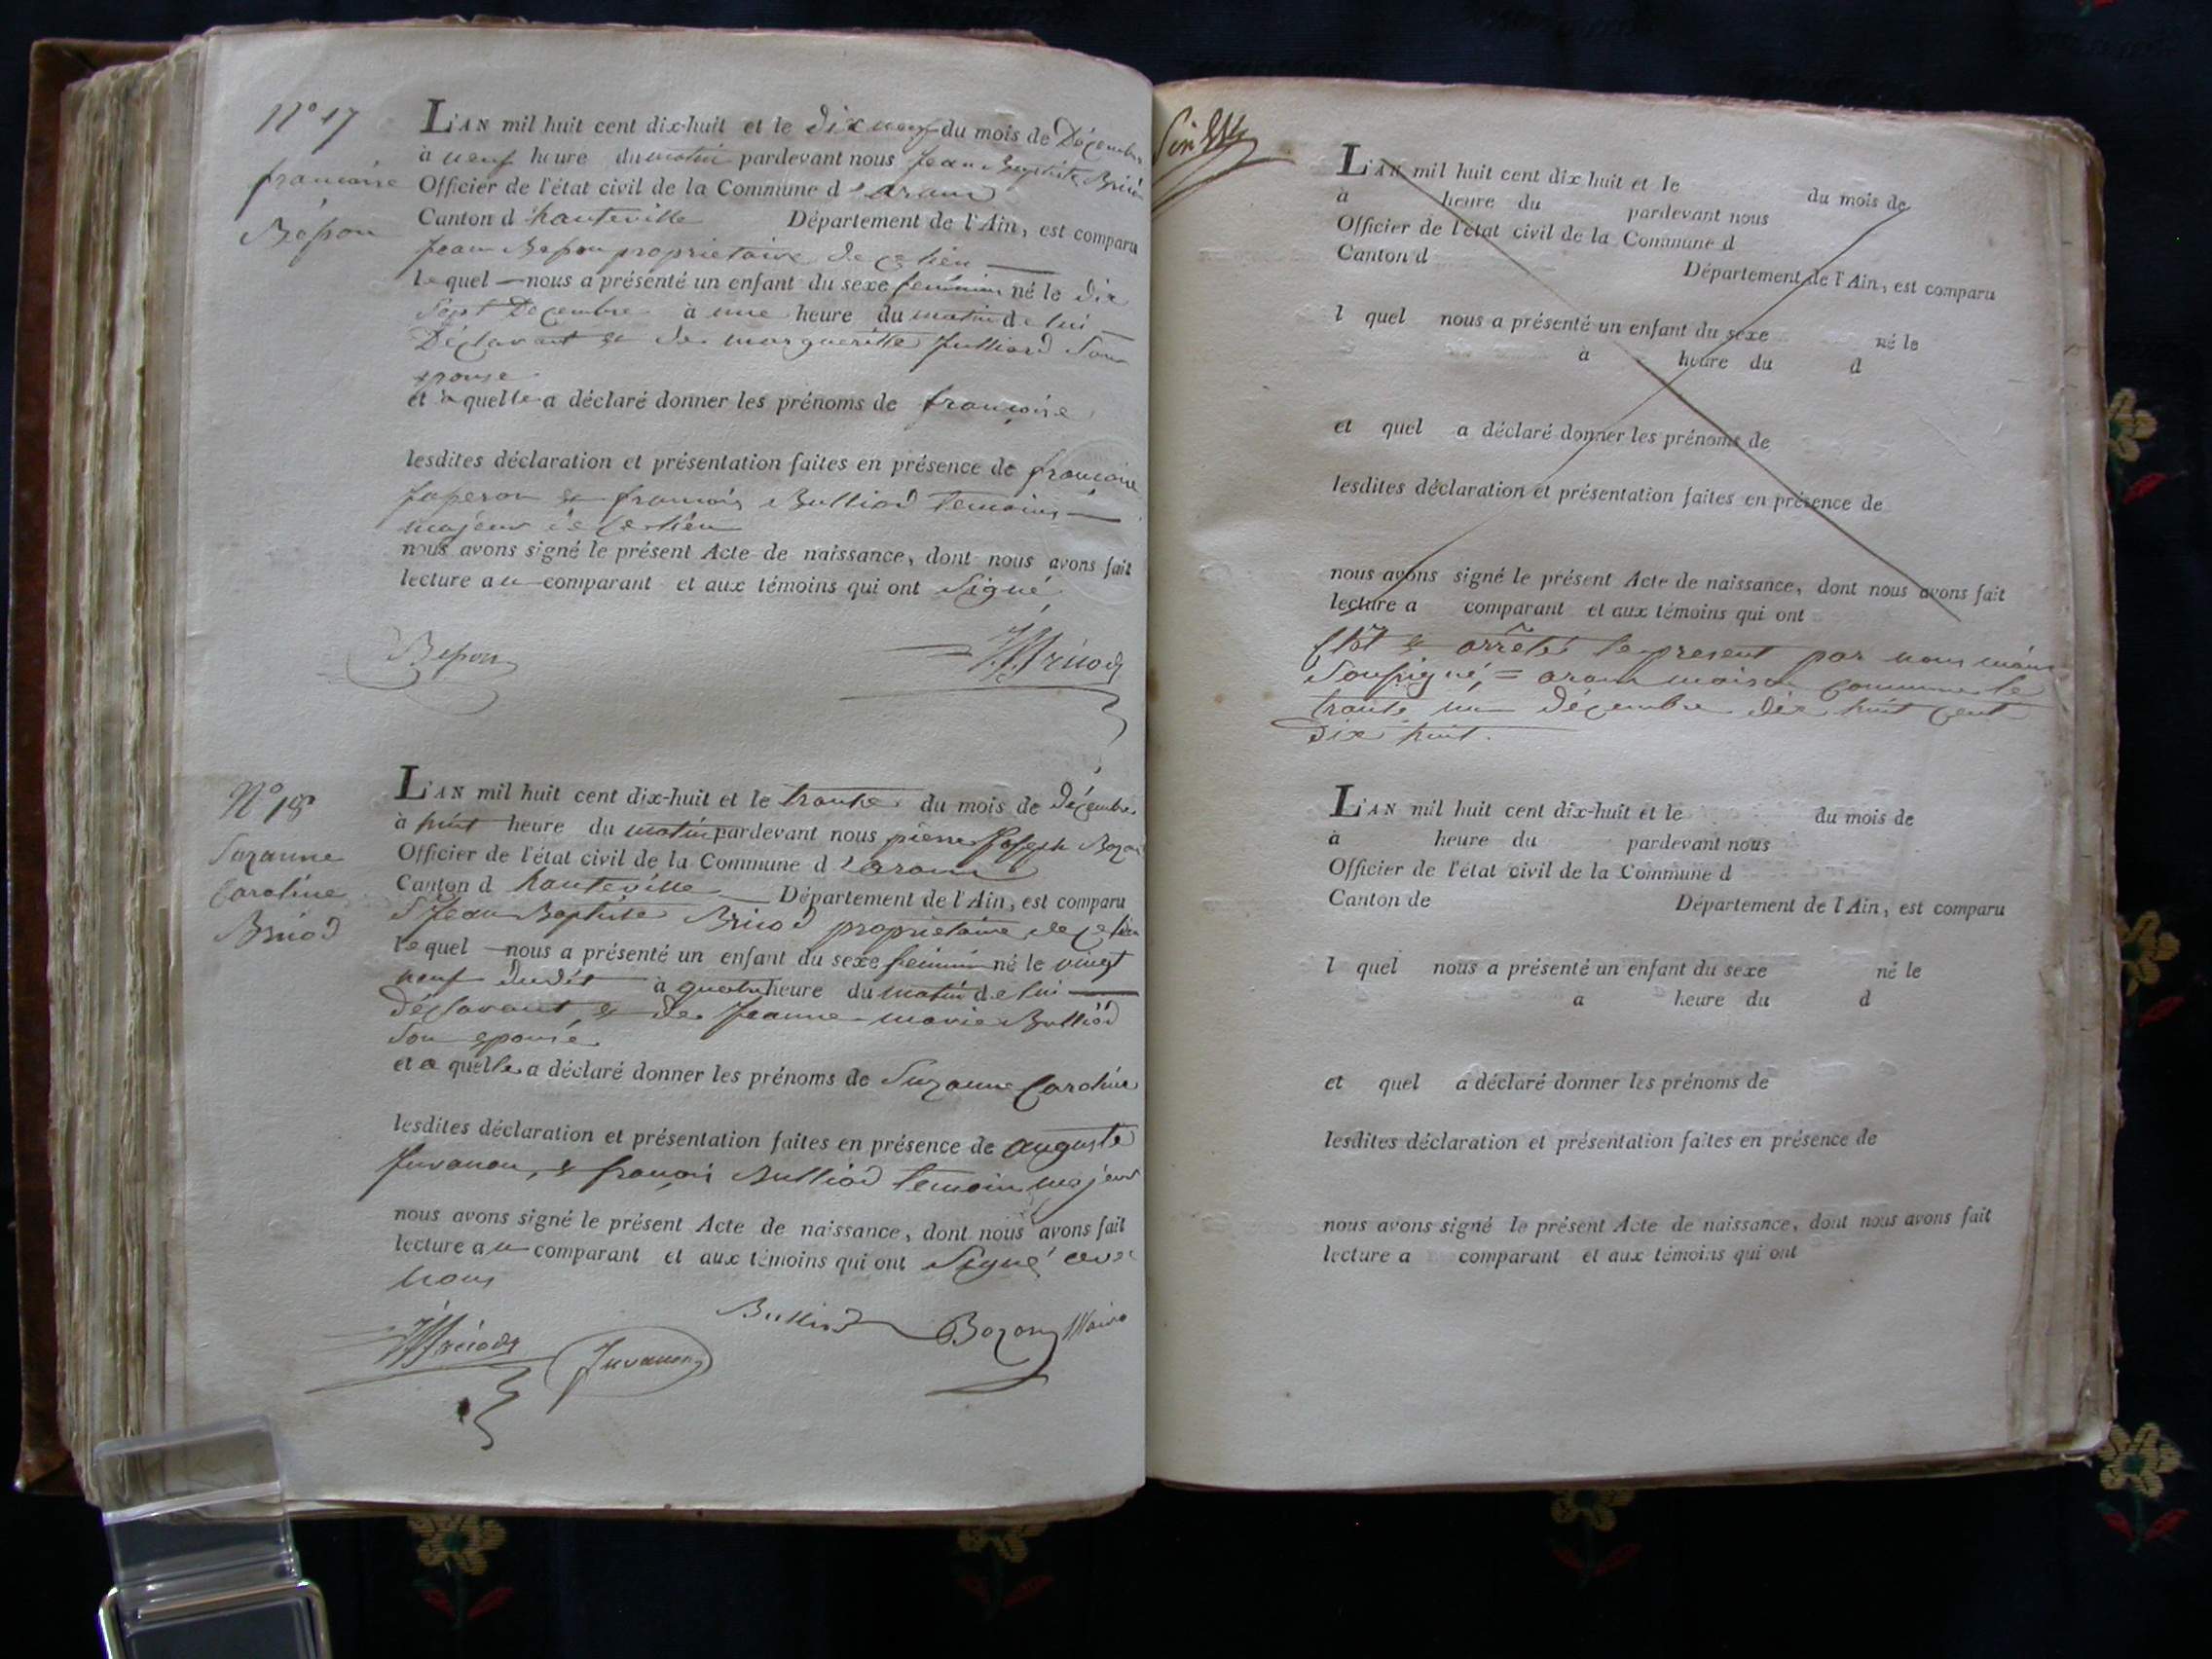 N° 17
francoise
Besson
L'AN mil huit cent dix-huit et le dix neuf du mois de Décembre
à neuf heure du matin pardevant nous Jean Baptiste Bricod
Officier de l'état civil de la Commune d'aranc
Canton d'hauteville Département de l'Ain, est comparu
Jean Besson proprietaire de ce lieu
lequel nous a présenté un enfant du sexe feminin né le dix
Sept Decembre à une heure du matin de lui
Déclarant & de margueritte Julliard Son
epouse
et a quelle a déclaré donner les prénoms de francoise
lesdites déclaration et présentation faites en présence de
& francois Bulliod temoins
majeur de ce lieu
nous avons signé le présent Acte de naissance, dont nous avons fait
lecture au comparant et aux témoins qui ont Signé
Besson
JBBricod
N° 18
Suzanne
Caroline
Bricod
L'AN mil huit cent dix-huit et le trante du mois de décembre
à huit heure du matin pardevant nous pierre Joseph Bozon
Officier de l'état civil de la Commune d'aranc
Canton d hauteville Département de l'Ain, est comparu
S Jean Baptiste Bricod proprietaire de ce lieu
lequel nous a présenté un enfant du sexe feminin né le vingt
neuf dudit à quatre heure du matin de lui
déclarant & de Jeanne marie Bulliod
Son epouse
et a quelle a déclaré donner les prénoms de Suzanne Caroline
lesdites déclaration et présentation faites en présence de auguste
Juvanon, & françois Bulliod temoin majeur
nous avons signé le présent Acte de naissance, dont nous avons fait
lecture au comparant et aux témoins qui ont Signé avec
nous
Bulliod Bozon Maire
JBBricod Juvanon
L'AN mil huit cent dix huit et le du mois de
à heure du pardevant nous
Officier de l'état civil de la Commune d
Canton d Département de l'Ain, est comparu
l quel nous a présenté un enfant du sexe né le
à heure du d
et quel a déclaré donner les prénoms de
lesdites déclaration et présentation faites en présence de
nous avons signé le présent Acte de naissance, dont nous avons fait
lecture a comparant et aux témoins qui ont
Clôt & arrêté le present par nous maire
Soussigné, = aranc maison commune le
trante un décembre dix huit cent
dix huit.
L'AN mil huit cent dix-huit et le du mois de
à heure du pardevant nous
Officier de l'état civil de la Commune d
Canton de Département de l'Ain, est comparu
l quel nous a présenté un enfant du sexe né le
a heure du d
et quel a déclaré donner les prénoms de
lesdites déclaration et présentation faites en présence de
nous avons signé le présent Acte de naissance, dont nous avons fait
lecture a comparant et aux témoins qui ont